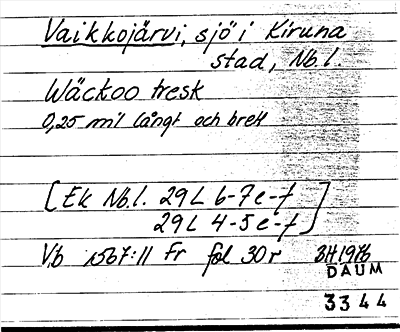 Vaikkojärvi, sjö i Kiruna
stad, Nb.l.
Wäckoo tresk
0,25 mil långt och brett
[Ek Nb.l. 29L 6-7e-f
29L 4-5e-f]
Vb 1567:11 Fr fol 30r SH 1976
DAUM
3344